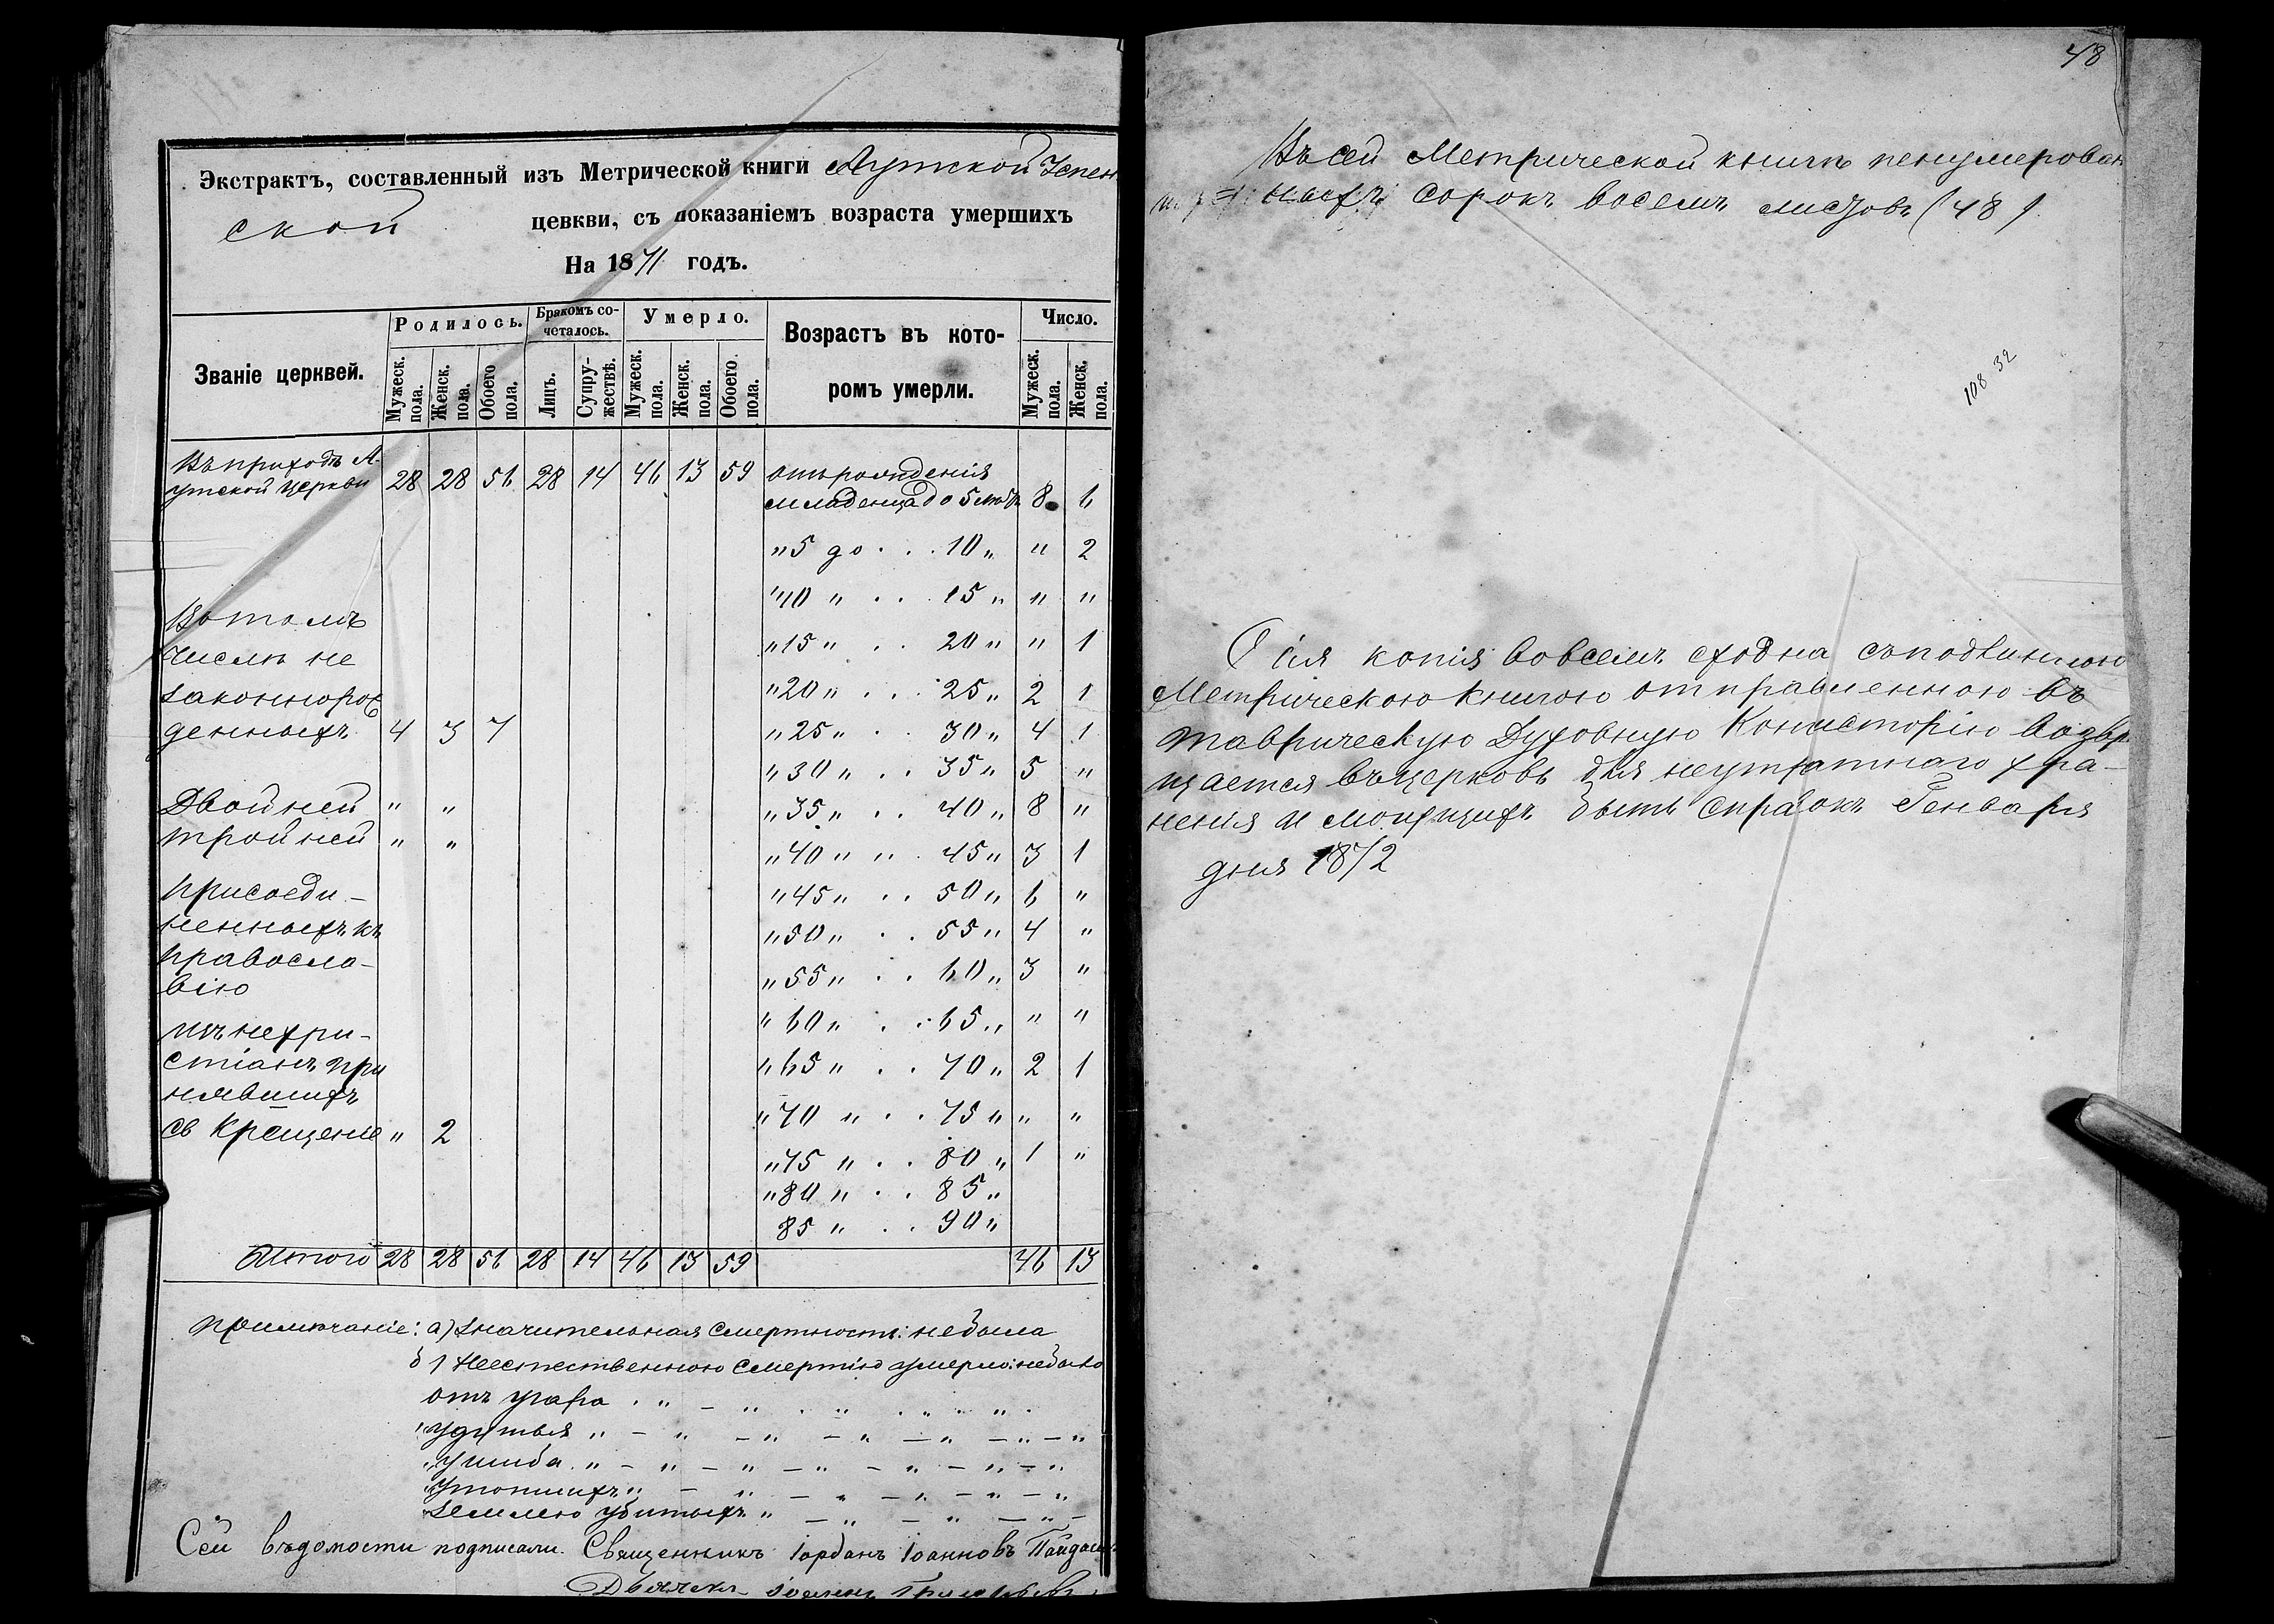 Экстрактъ, составленный изъ Метрической книги Аутской Успен
ской цевкви, съ показаніемъ возраста умершихъ
На 1871 годъ.
Званіе церквей. Родилось. Бракомъ со-четалось. Умерло. Возрастъ въ кото-ромъ умерли. Число.
Мужеск. пола. Женск. пола. Обоего пола. Лицъ. Супру-жествѣ. Мужеск. пола. Женск. пола. Обоего пола. Мужеск. пола. Женск. пола.
Въ приходѣ А-
утской церкви 28 28 56 28 14 46 13 59 отъ рожденія
младенца до 5 лѣтъ 8 6
"5 до . . . 10 " " 2
"10 " . . . 15 " " "
Вотомъ
"15 " . . 20 " " 1
числѣ не
законнорож "20 " . . . 25 " 2 1
денныхъ 4 3 7 "25 " . . 30 " 4 1
"30 " . . 35 " 5 "
Двойней " " "35 " . . 40 " 8 "
тройней " " "40 " " . 45 " 3 1
присоеди- "45 " . . 50 " 6 "
ненныхъ къ "50 " . . 55 " 4 "
правосла- "55 " . . 60 " 3 "
вію
изъ нехри- "60 " . . 65 " " "
стіанъ при "65 " . . 70 " 2 1
нявшихъ "70 " . . 75 " " "
св крещеніе " 2
"75 " . . 80 " 1 "
"80 " . . 85 "
85 " . . 90 "
Итого 28 28 56 28 14 46 13 59 46 13
примѣчаніе: а) значительная смертность: небыла
б) Неестественною смертію умерло: небыло
отъ угара . " - " . " . " . " .
" удитья " - " - " - " - " - " - "
" ушиба " - " - " - " - " - " - "
" утопшихъ " - " - " - " - " - "
землею убитыхъ " - " - " - " -
Сей вѣдомости подписали. Священникъ Іорданъ Іоанновъ
48
Въ сей Метрической книгѣ пенумерован
ныхъ сорокъ восемъ листовъ (48).
108 32
Сія копія вовсемъ сходна съ подлинною
Метрическою книгою отправленною въ
таврическую Духовную Консисторію возвра
щается въ церковь для неутратнаго хра-
ненія и могущихъ быть справокъ Генваря
дня 1872